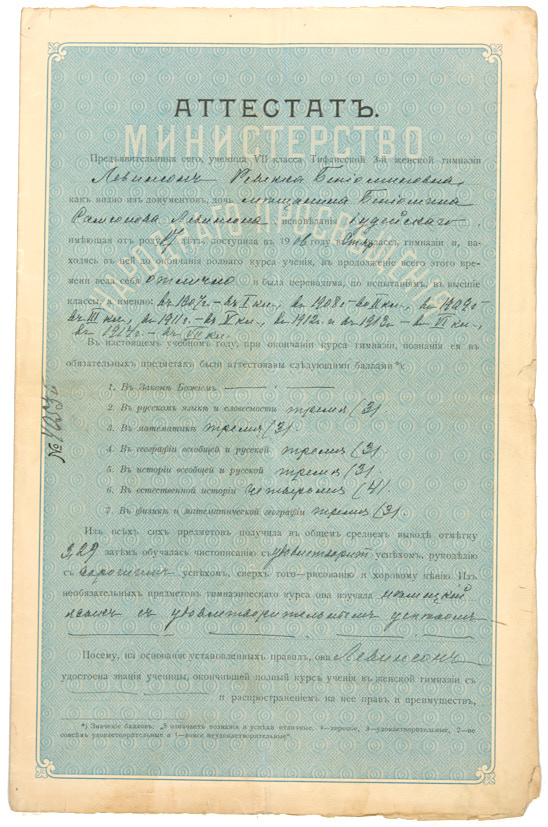 АТТЕСТАТЪ.
МИНИСТЕРСТВО
НАРОДНАГО ПРОСВѢЩЕНІЯ
Предъявительница сего, ученица VII класса Тифлисской 3-й женской гимназіи
Левинсонъ Ревекка Беніаминовна,
какъ видно изъ документовъ, дочь мѣщанина Беніамина
Самсонова Левинсона, исповѣданія Іудейскаго,
имѣющая отъ роду 17 лѣтъ, поступила въ 1906 году классъ гимназіи и, на-
ходясь въ ней до окончанія полнаго курса ученія, въ продолженіе всего этого времени
вела себя отлично и была переводима, по испытаніямъ, въ высшіе
классы, а именно: въ 1907г.- въ I кл., въ 1908г.- во II кл., въ 1909г.-
въ III кл., въ 1911г.- въ V кл., въ 1912г. и въ 1913г.- въ VI кл.,
въ 1914г.- въ VII кл.
Въ настоящемъ учебномъ году, при окончаніи курса гимназіи, познанія ея въ
обязательныхъ предметахъ были аттестованы слѣдующими баллами*):
1. Въ Законѣ Божіемъ
2. Въ русскомъ языкѣ и словесности тремя (3).
3. Въ математикѣ тремя (3).
4. Въ географіи всеобщей и русской тремя (3).
5. Въ исторіи всеобщей и русской тремя (3).
6. Въ естественной исторіи четырьмя (4).
7. Въ физикѣ и математической географіи тремя (3).
Изъ всѣхъ сихъ предметовъ получила въ общемъ среднемъ выводѣ отмѣтку
3,29 затѣмъ обучалась чистописанію съ удовлетворит. успѣхомъ, рукодѣлію
съ хорошимъ успѣхомъ, сверхъ того—рисованію и хоровому пѣнію. Изъ
необязательныхъ предметовъ гимназическаго курса она изучала нѣмецкій
языкъ съ удовлетворительнымъ успѣхомъ
Посему, на основаніи установленныхъ правилъ, она Левинсонъ
удостоена званія ученицы, окончившей полный курсъ ученія въ женской гимназіи съ
и распространеніемъ на нее правъ и преимуществъ,
*) Значеніе балловъ: „5 означаетъ познанія и успѣхи отличные, 4—хорошіе, 3—удовлетворительные, 2—не
совсѣмъ удовлетворительные и 1—вовсе неудовлетворительные“.